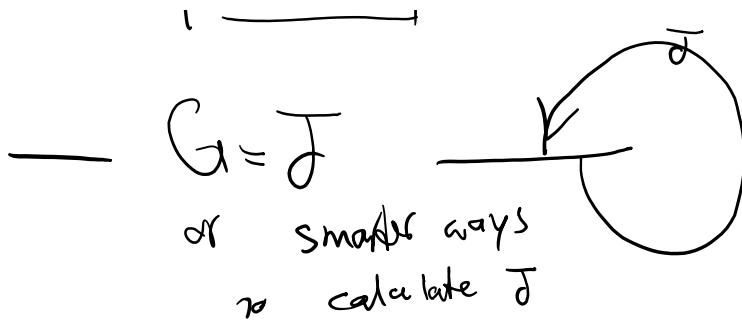 J
G = J
or smarter ways
to calculate J